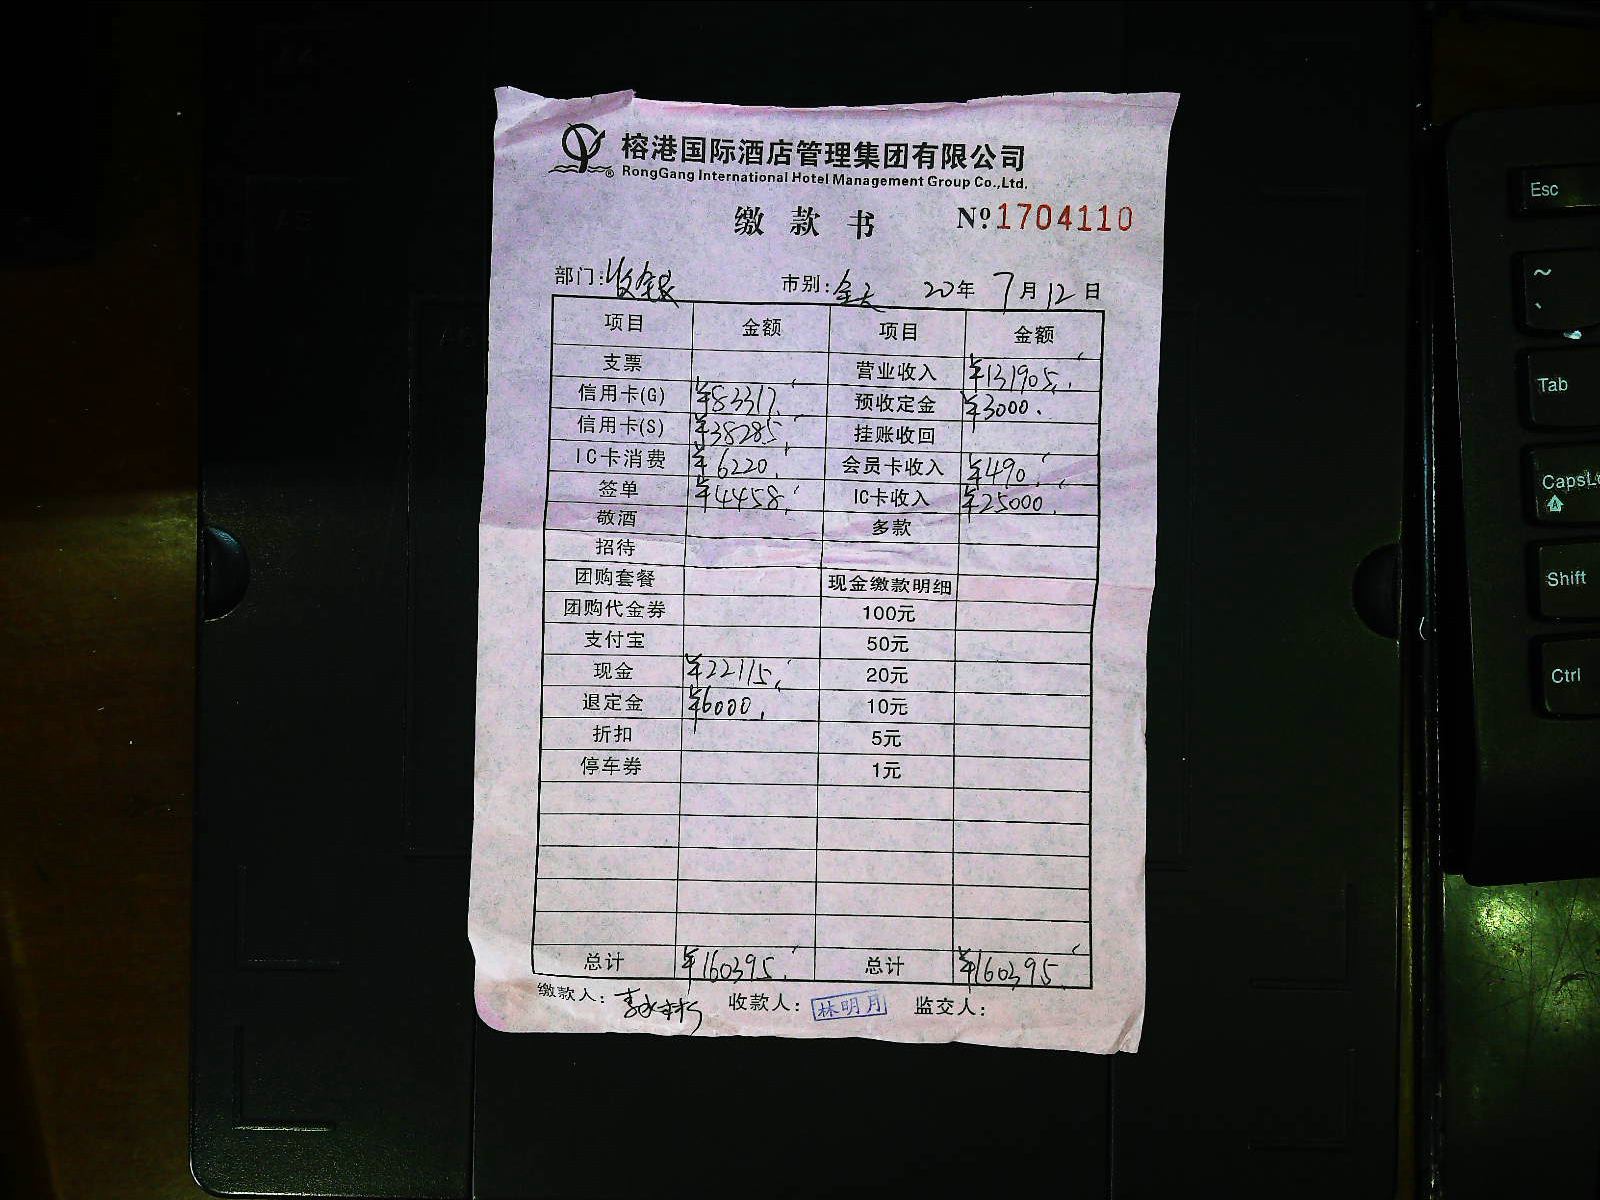 榕港国际酒店管理集团有限公司
RongGang International Hotel Management Group Co.,Ltd.
缴款书 №1704110
部门:收银 市别:全天 20年 7月12日
项目 金额 项目 金额
支票 营业收入 ¥131905.
信用卡(G) ¥83317. 预收定金 ¥3000.
信用卡(S) ¥38285. 挂账收回
IC卡消费 ¥6220. 会员卡收入 ¥490.
签单 ¥4458. IC卡收入 ¥25000.
敬酒 多款
招待
团购套餐 现金缴款明细
团购代金券 100元
支付宝 50元
现金 ¥22115. 20元
退定金 ¥6000. 10元
折扣 5元
停车券 1元
总计 ¥160395. 总计 ¥160395
缴款人: 收款人:林明月 监交人:
Esc
~
、
Tab
CapsLo
Shift
Ctrl